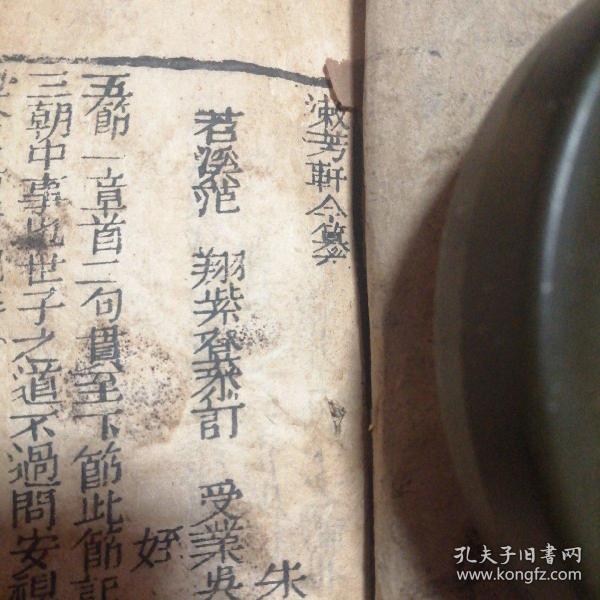 漱芳軒合纂
苕溪范 翔紫登叅訂 受業吳
朱
好
五節一章首二句貫至下節此節記
三朝中事也世子之道不過問安視
孔夫子旧书网
www.kongfz.com